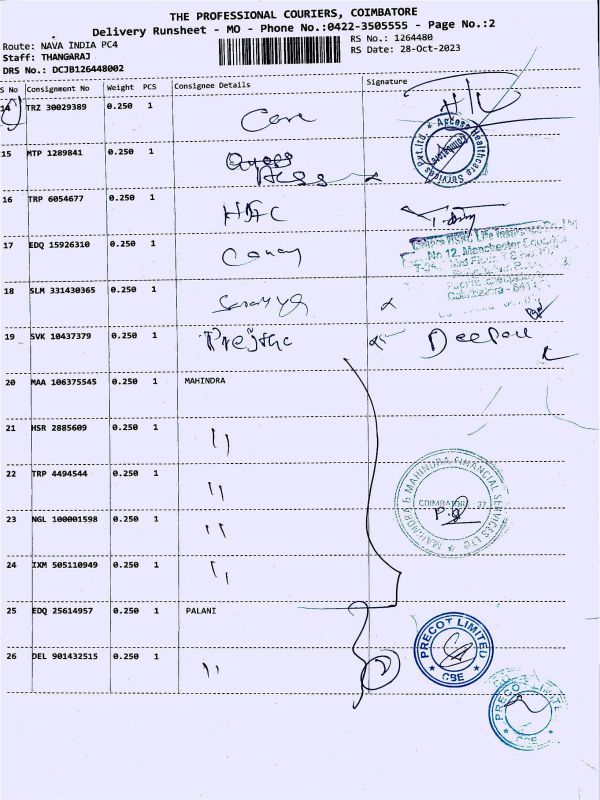 THE PROFESSIONAL COURIERS, COIMBATORE
Delivery Runsheet - MO - Phone No.:0422-3505555 - Page No.:2
Route: NAVA INDIA PC4
RS No.: 1264480
Staff: THANGARAJ
RS Date: 28-Oct-2023
DRS No.: DCJB126448002
S No Consignment No Weight PCS Consignee Details Signature
14 TRZ 30029389 0.250 1 Care
Access Healthcare Services Pvt.Ltd. * Coimbatore
15 MTP 1289841 0.250 1
16 TRP 6054677 0.250 1
17 EDQ 15926310 0.250 1
No 12, Manchester
18 SLM 331430365 0.250 1
19 SVK 10437379 0.250 1 Deepa
20 MAA 106375545 0.250 1 MAHINDRA
21 HSR 2885609 0.250 1 "
22 TRP 4494544 0.250 1 "
MAHINDRA & MAHINDRA FINANCIAL SERVICES LTD *
COIMBATORE - 37
23 NGL 100001598 0.250 1 "
24 IXM 505110949 0.250 1 "
25 EDQ 25614957 0.250 1 PALANI
PRECOT LIMITED
* CBE *
26 DEL 901432515 0.250 1 "
PRECOT LIMITED
* CBE *